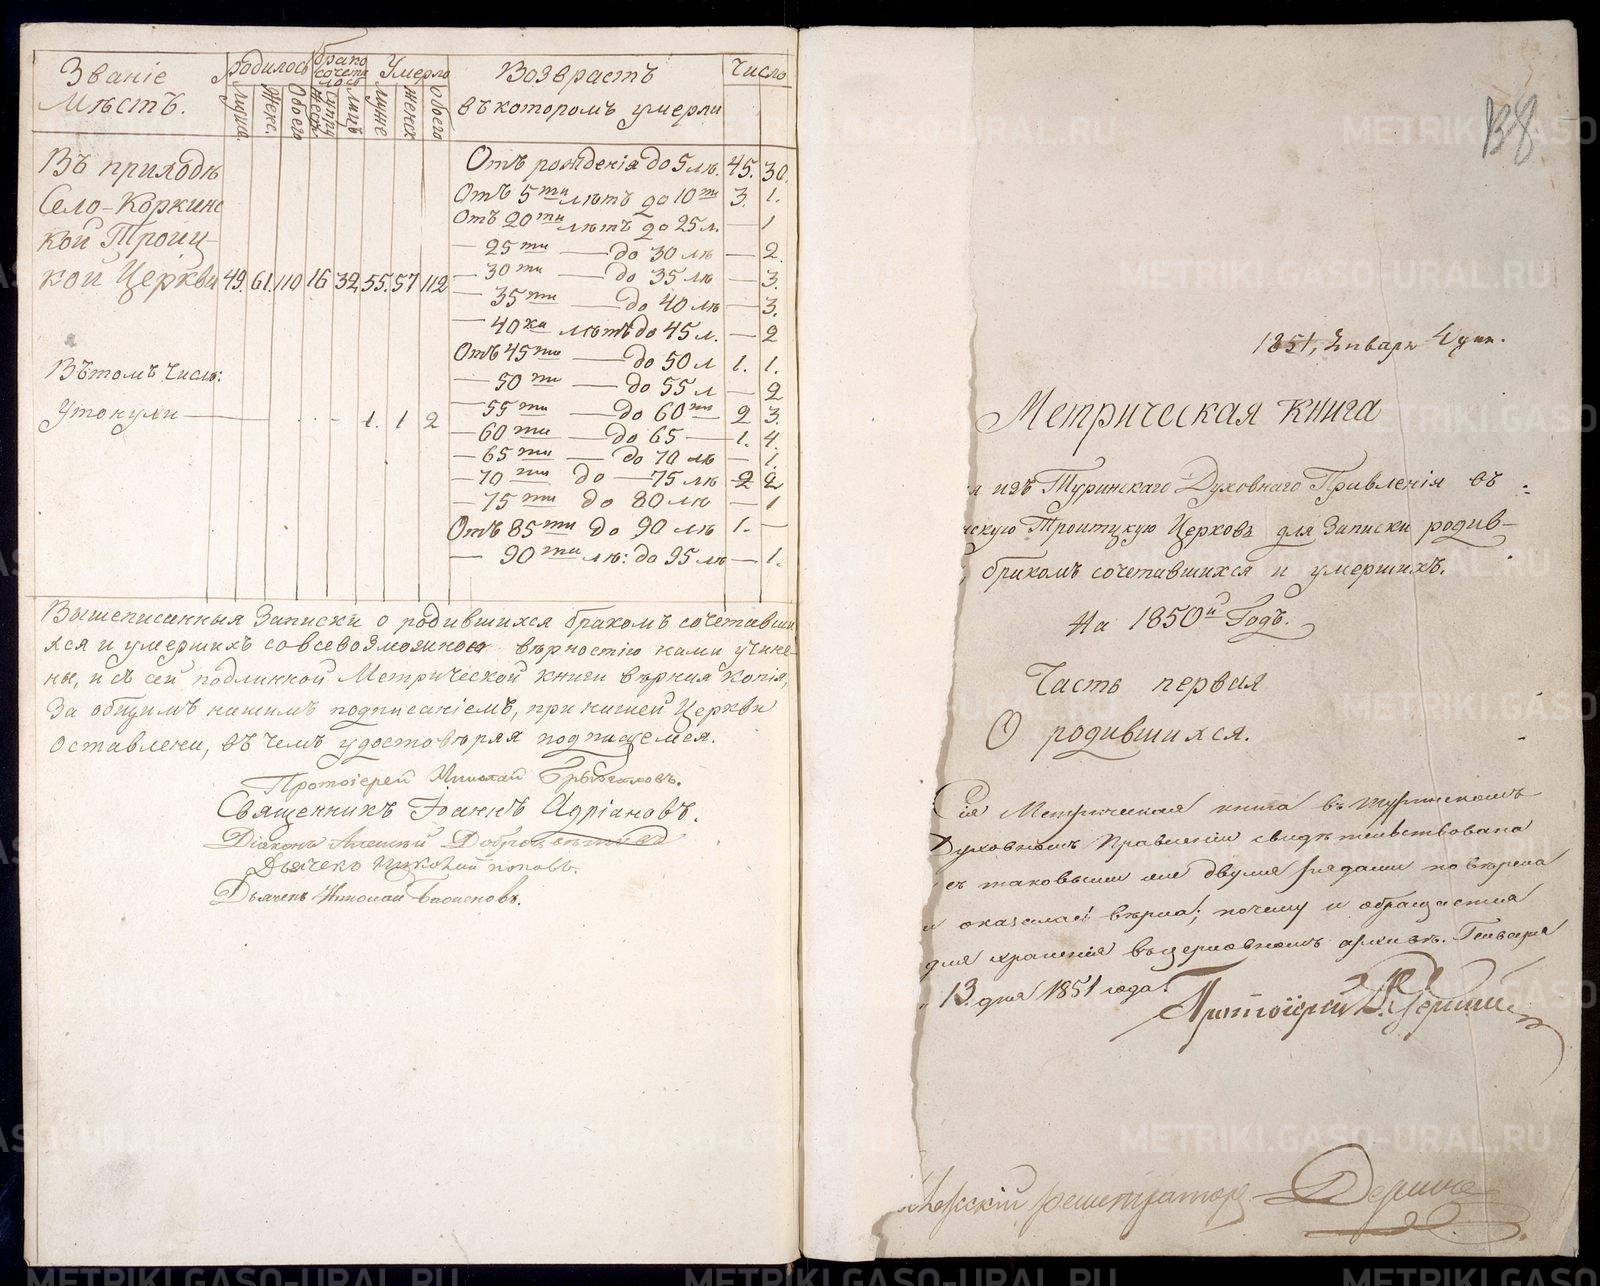 Званіе
Мѣстъ.
Родилось
Брако
сочета
лось
Умерло
Возврастъ
въ которомъ умерли
Число
Женс.
Обоего
лицъ
муже
женск
обоего
Въ приходѣ
Село-Коркинс
кой Троиц-
кой Церкви 49. 61. 110 16 32 55. 57 112
Въ томъ числѣ:
Утонули — 1. 1 2
Отъ рожденія до 5 лѣ. 45. 30.
Отъ 5ти лѣтъ до 10ти 3. 1.
Отъ 20ти лѣтъ до 25 л. — 1
— 25ти — до 30 лѣ — 2.
— 30ти — до 35 лѣ — 3.
— 35ти — до 40 лѣ — 3.
— 40ка лѣтъ до 45 л. — 2
Отъ 45ти — до 50 л 1. 1.
— 50ти — до 55 л — 2
— 55ти — до 60ти 2 3.
— 60ти — до 65 — 1. 4.
— 65ти — до 70 лѣ — 1.
— 70ти до — 75 лѣ 2 2
— 75ти до 80 лѣ — 1
Отъ 85ти до 90 лѣ 1. —
— 90ти лѣ: до 95 лѣ — 1.
Вышеписанныя Записки о родившихся бракомъ сочетавши
хся и умершихъ со всевозможною вѣрностію нами учине-
ны, и съ сей подлинной Метрической книги вѣрная копія,
за общимъ нашимъ подписаніемъ, при нашей Церкви
оставлени, въ чемъ удостовѣряя подпищемся.
Протоіерей Николай
Священникъ Іоаннъ Адріановъ.
Діаконъ
Дьячекъ Николай Поповъ.
Дьячекъ Николай
1851, Января 4 дня.
Метрическая книга
я изъ Туринскаго Духовнаго Правленія въ
нскую Троитцкую Церковь для Записки родив-
бракомъ сочетавшихся и умершихъ.
На 1850й Годъ.
Часть первая
О родившихся.
Сія Метрическая книга въ Туринскомъ
Духовномъ Правленіи свидѣтельствована
съ таковыми же двумя
и оказалась вѣрна; почему и обращается
для храненія въ церковномъ архивѣ. Генваря
13. дня 1851 года.
Протоіерей
регистраторъ
METRIKI.GASO-URAL.RU